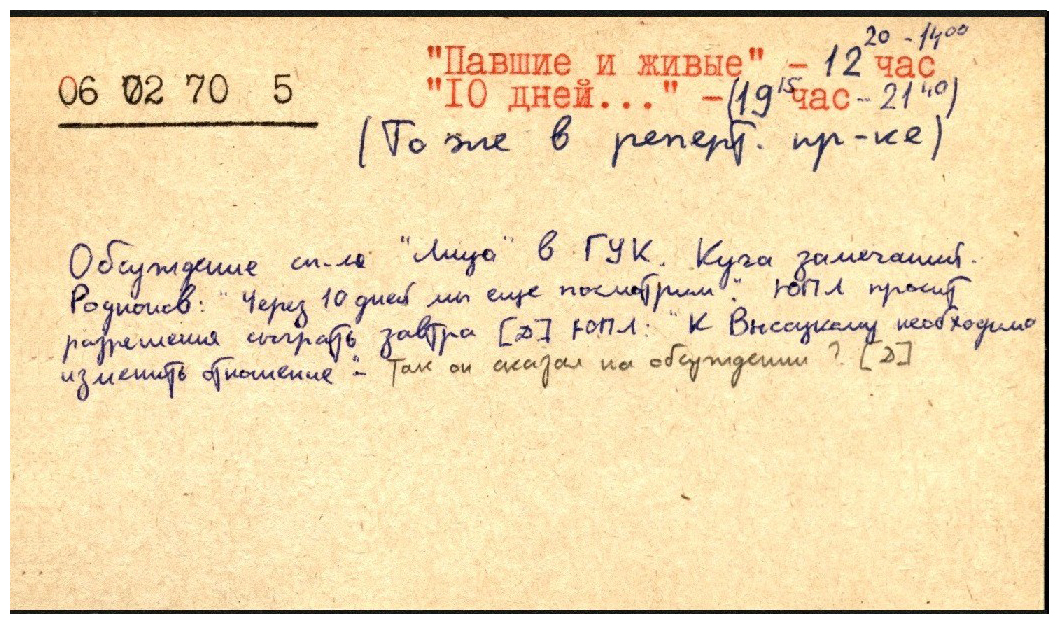 06 02 70 5
"Павшие и живые" - 12²⁰-14⁰⁰ час
"10 дней..." - (19¹⁵ час - 21⁴⁰)
(То же в реперт. пр-ке)
Обсуждение сп-ля "Лица" в ГУК. Куча замечаний.
Родионов: "Через 10 дней мы еще посмотрим". ЮПЛ просит
разрешения сыграть завтра [Д] ЮПЛ: "К Высоцкому необходимо
изменить отношение" - Так он сказал на обсуждении? [Д]